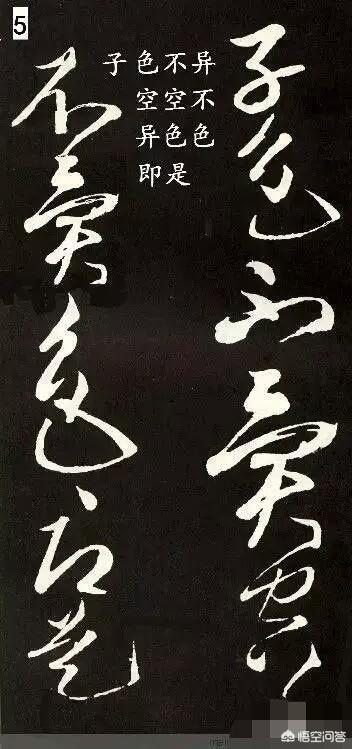 5
子色不异
空空不
异色色
即是
子色不异空々
不异色々即是
悟空问答